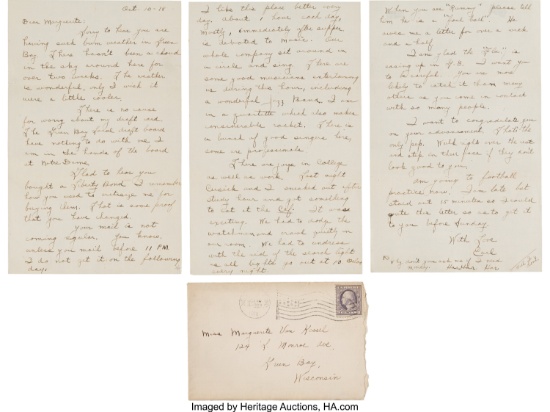 Oct. 10-18
Dear Marguerite:
Sorry to hear you are
having such bum weather in Green
Bay. There hasn't been a cloud
in the sky around here for
over two weeks. The weather
is wonderful, only I wish it
were a little cooler.
There is no cause
for worry about my draft
The Green Bay draft board
have nothing to do with me. I
am in the hands of the board
at Notre Dame.
Glad to hear you
bought a Liberty Bond. I remember
how you used to
buying them. That is some proof
that you have changed.
Your mail is not
coming regular. You know
unless you mail before 11 P.M.
I do not get it on the following
day.
I like this place better every
day
mostly, immediately after supper
is devoted to music. The
whole company sit around in
a circle and sing. There are
some good musicians entertaining
us during the hour, including
a wonderful Jazz Band. I am
in a quartette which also makes
considerable racket. There is
a bunch of good singers here,
some us professionals.
There is in College
as well as work. Last night
Cusick and I sneaked out after
study hour and got something
to eat at the Caf. It was
exciting. We had to dodge the
watchman and
our room. We had to undress
with the aid of the search light
as all lights go out at 10
every night.
When you see "Kimmy" please tell
him he is a He
owes me a letter for over a week
and a half.
I am glad the "Flu" is
easing up in G.B. I want you
to be careful. You are more
likely to catch it than many
others as you come in contact
with so many people.
I want to congratulate you
on your advancement. That's the
only pep. Walk right over the
and step on their face if they don't
look good to you.
Am going to football
practice now. I'm late but
started out 15 minutes so I could
write this letter so as to get it
to you before Sunday.
With Love
Earl
Miss Marguerite Van Kessel
124 N. Monroe Ave
Green Bay,
Wisconsin
Imaged by Heritage Auctions, HA.com